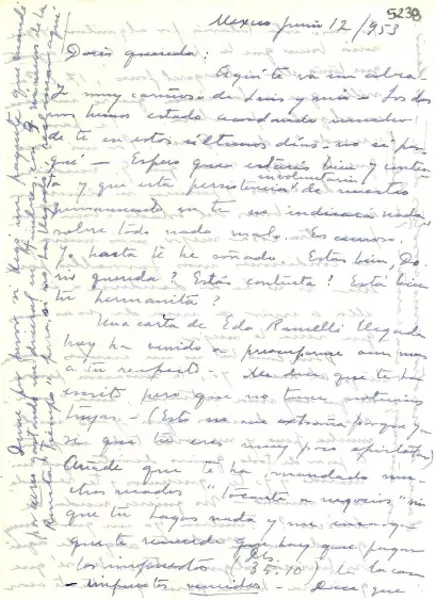 5239
Mexico junio 12/953
Doris querida:
Aquí te va un abra-
zo muy cariñoso de Luis y mío - Los dos
nos hemos estado acordando mucho
de ti en estos últimos días - no sé por
qué - Espero que estarás bien y conten-
ta y que esta persistencia involuntaria de nuestro
pensamiento en ti no indicará nada,
sobre todo nada malo. Es curioso.
Yo hasta te he soñado. Estás bien, Do
ris querida? Estás contenta? Está bien
tu hermanita?
Una carta de Eda Ramelli llegada
hoy ha venido a preocuparme aun mas
a tu respecto - Me dice que te ha
escrito pero que no tiene noticias
tuyas - (Esto no me extraña porque ya
sé que tú eres muy poco epistolar)
Añade que te ha mandado mu-
chos recados "tocante a negocios" sin
que tú hagas nada y me encarga
que te recuerde que hay que pagar
los impuestos (Dls. 35.10) de la casa
- impuestos vencidos - Dice que
Dime por favor si llegó un paquete que mandé